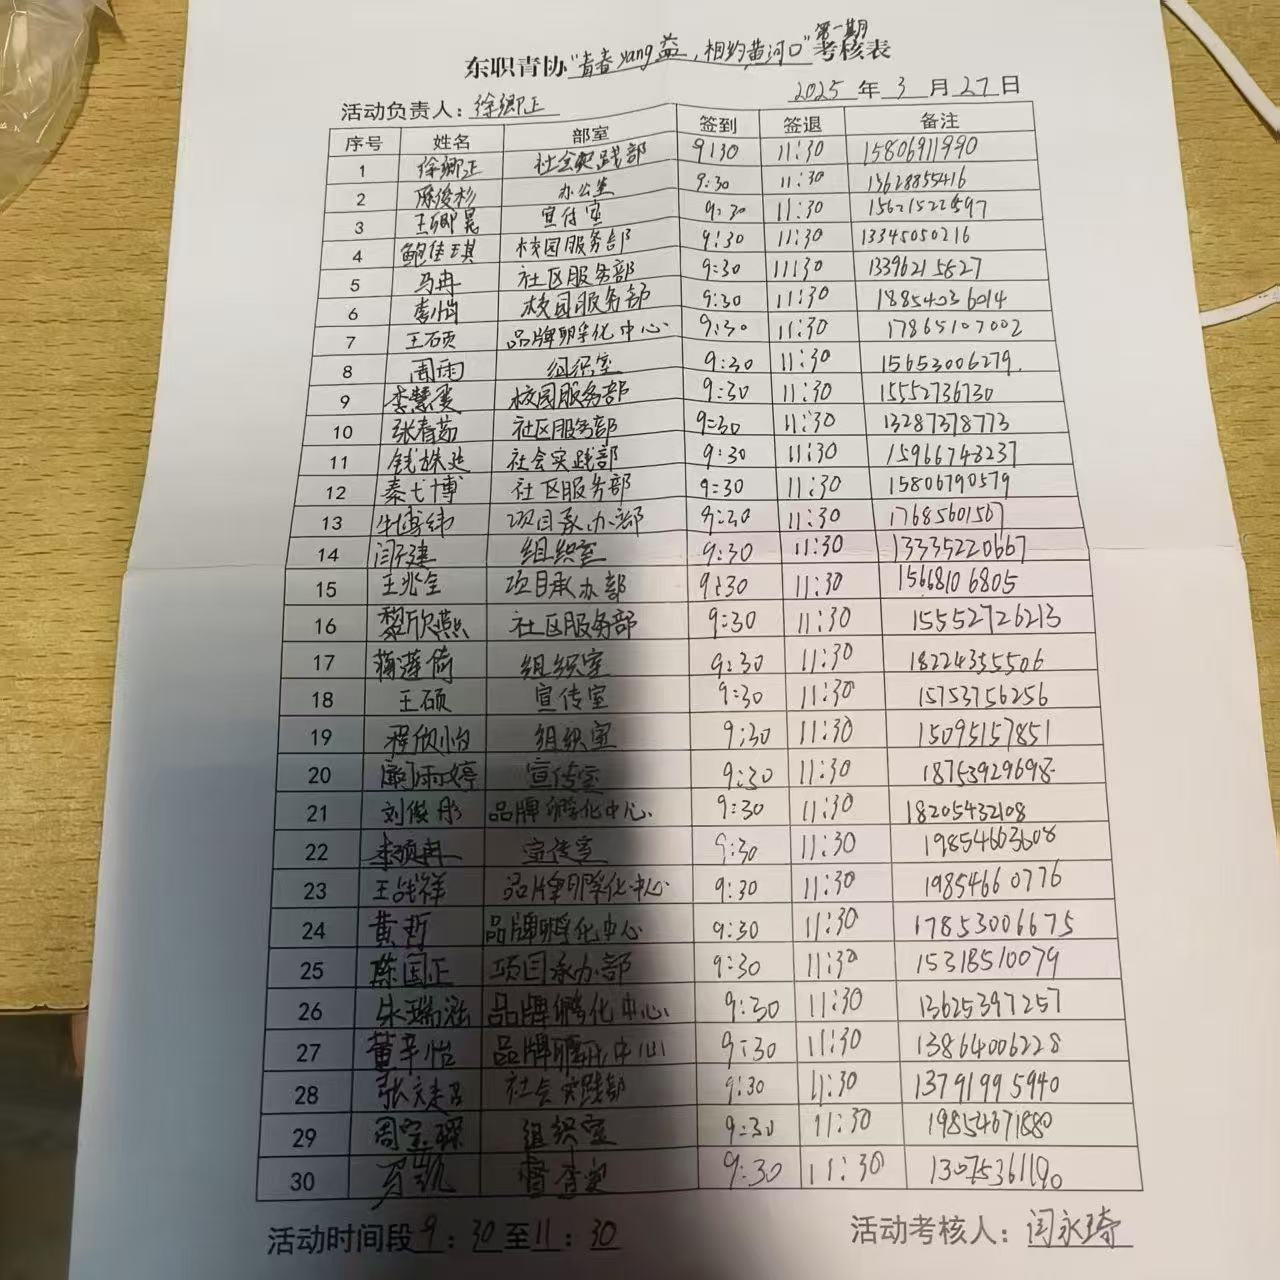 第一期
东职青协“青春yang益,相约黄河口”考核表
2025年3月27日
活动负责人:徐卿正
序号 姓名 部室 签到 签退 备注
1 徐卿正 社会实践部 9:30 11:30 15806911990
2 陈俊杉 办公室 9:30 11:30 13628855416
3 王卿晃 宣传室 9:30 11:30
4 鲍佳琪 校园服务部 9:30 11:30 13345050216
5 马冉 社区服务部 9:30 11:30 13396215827
6 李怡 校园服务部 9:30 11:30 18854036014
7 王硕 品牌孵化中心 9:30 11:30 17865107002
8 周雨 组织室 9:30 11:30 15653006279
9 李慧雯 校园服务部 9:30 11:30 15552736730
10 张春茹 社区服务部 9:30 11:30 13287378773
11 钱姝 社会实践部 9:30 11:30 15966748237
12 秦弋博 社区服务部 9:30 11:30 15806790579
13 牛博纬 项目承办部 9:30 11:30 17685601567
14 闫子建 组织室 9:30 11:30 13335220667
15 王兆全 项目承办部 9:30 11:30 15668106805
16 黎欣燕 社区服务部 9:30 11:30 15552726213
17 蒲莲倚 组织室 9:30 11:30 18224355506
18 王硕 宣传室 9:30 11:30 15753756256
19 程欣怡 组织室 9:30 11:30 15095157851
20 雨婷 宣传室 9:30 11:30 18753929698
21 刘俊彤 品牌孵化中心 9:30 11:30 18205432108
22 李冉 宣传室 9:30 11:30 19854603608
23 王祥 品牌孵化中心 9:30 11:30 19854660776
24 黄哲 品牌孵化中心 9:30 11:30 17853006675
25 陈国正 项目承办部 9:30 11:30 15318510079
26 朱瑞泓 品牌孵化中心 9:30 11:30 13625397257
27 董辛怡 品牌孵化中心 9:30 11:30 13864006228
28 张 社会实践部 9:30 11:30 13791995940
29 周宝琛 组织室 9:30 11:30 19854671880
30 督查室 9:30 11:30 13075361190
活动时间段9:30至11:30
活动考核人:闫永琦